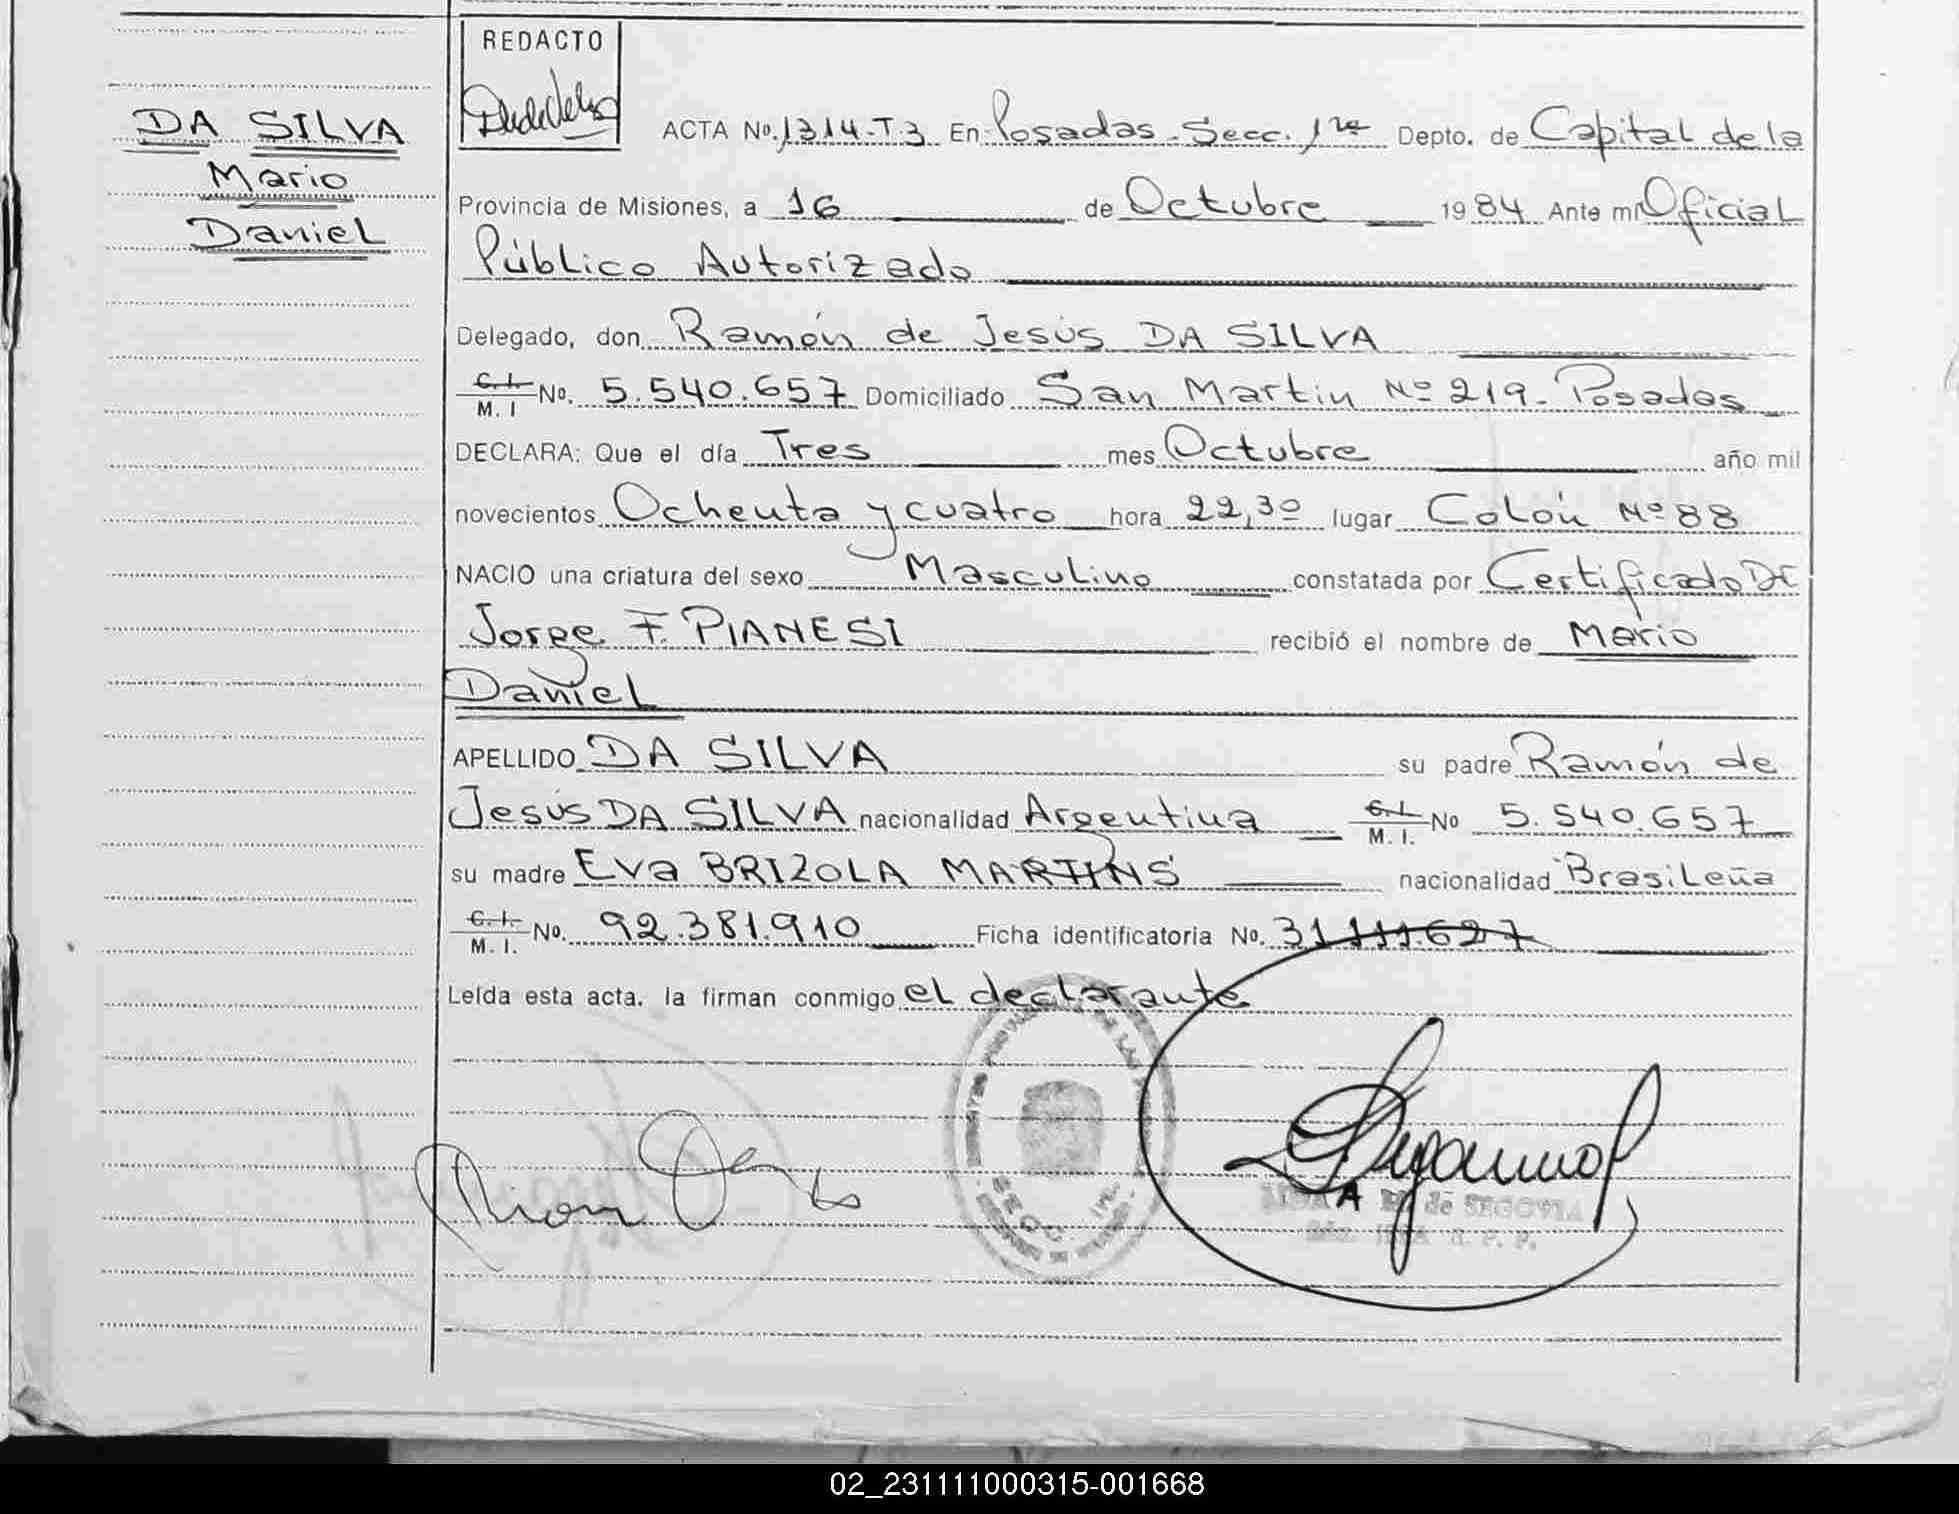 REDACTO
DA SILVA
Mario
Daniel
ACTA No. 1314-T3 En Posadas - Secc. 1ra Depto. de Capital de la
Provincia de Misiones, a 16 de Octubre 1984 Ante mí Oficial
Público Autorizado
Delegado, don Ramón de Jesús DA SILVA
C.I. M.I No. 5.540.657 Domiciliado San Martin Nº 219 - Posadas
DECLARA: Que el día Tres mes Octubre año mil
novecientos Ochenta y cuatro hora 22,30 lugar Colón Nº 88
NACIO una criatura del sexo Masculino constatada por Certificado De
Jorge F. PIANESI recibió el nombre de Mario
Daniel
APELLIDO DA SILVA su padre Ramón de
Jesús DA SILVA nacionalidad Argentina C.I. M.I. No 5.540.657
su madre Eva BRIZOLA MARTINS nacionalidad Brasileña
C.I. M.I. No. 92.381.910 Ficha identificatoria No. 31.111.627
Leída esta acta, la firman conmigo el declarante
SECC.
de SEGOVIA
02_231111000315-001668